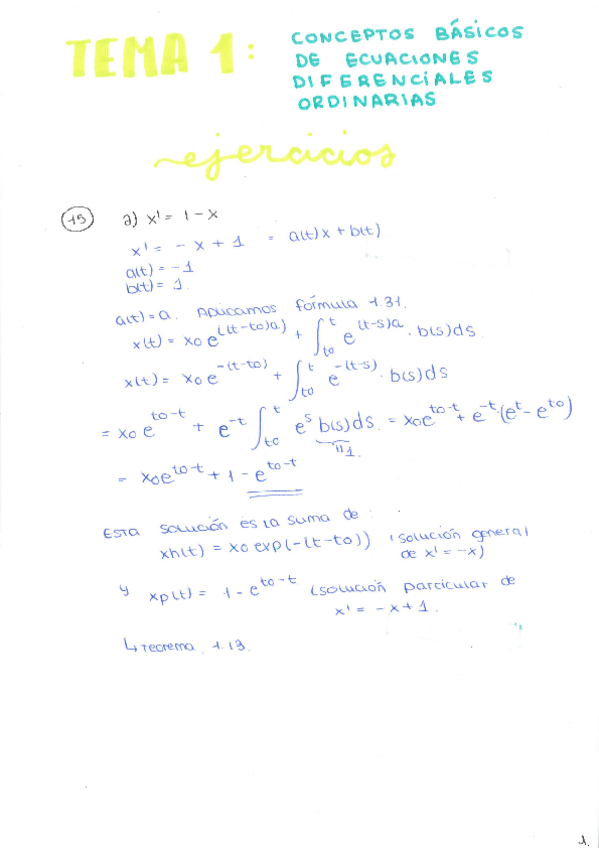 TEMA 1:
CONCEPTOS BÁSICOS
DE ECUACIONES
DIFERENCIALES
ORDINARIAS
ejercicios
15 a) x' = 1 - x
x' = - x + 1 = a(t)x + b(t)
a(t) = -1
b(t) = 1.
a(t) = a. Aplicamos fórmula 1.31.
x(t) = x0 e^((t-t0)a) + ∫_t0^t e^((t-s)a) · b(s)ds
x(t) = x0 e^(-(t-t0)) + ∫_t0^t e^(-(t-s)) · b(s)ds
= x0 e^(t0-t) + e^(-t) ∫_t0^t e^s b(s)ds = x0e^(t0-t) + e^(-t)·(e^t - e^t0)
"1.
= x0e^(t0-t) + 1 - e^(t0-t)
Esta solución es la suma de:
xh(t) = x0 exp(-(t-t0)) (solución general
de x' = -x)
y xp(t) = 1 - e^(t0-t) (solución particular de
x' = -x + 1.
↳ Teorema 1.13.
1.